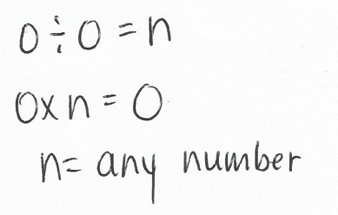 0÷0=n
0xn=0
n= any number